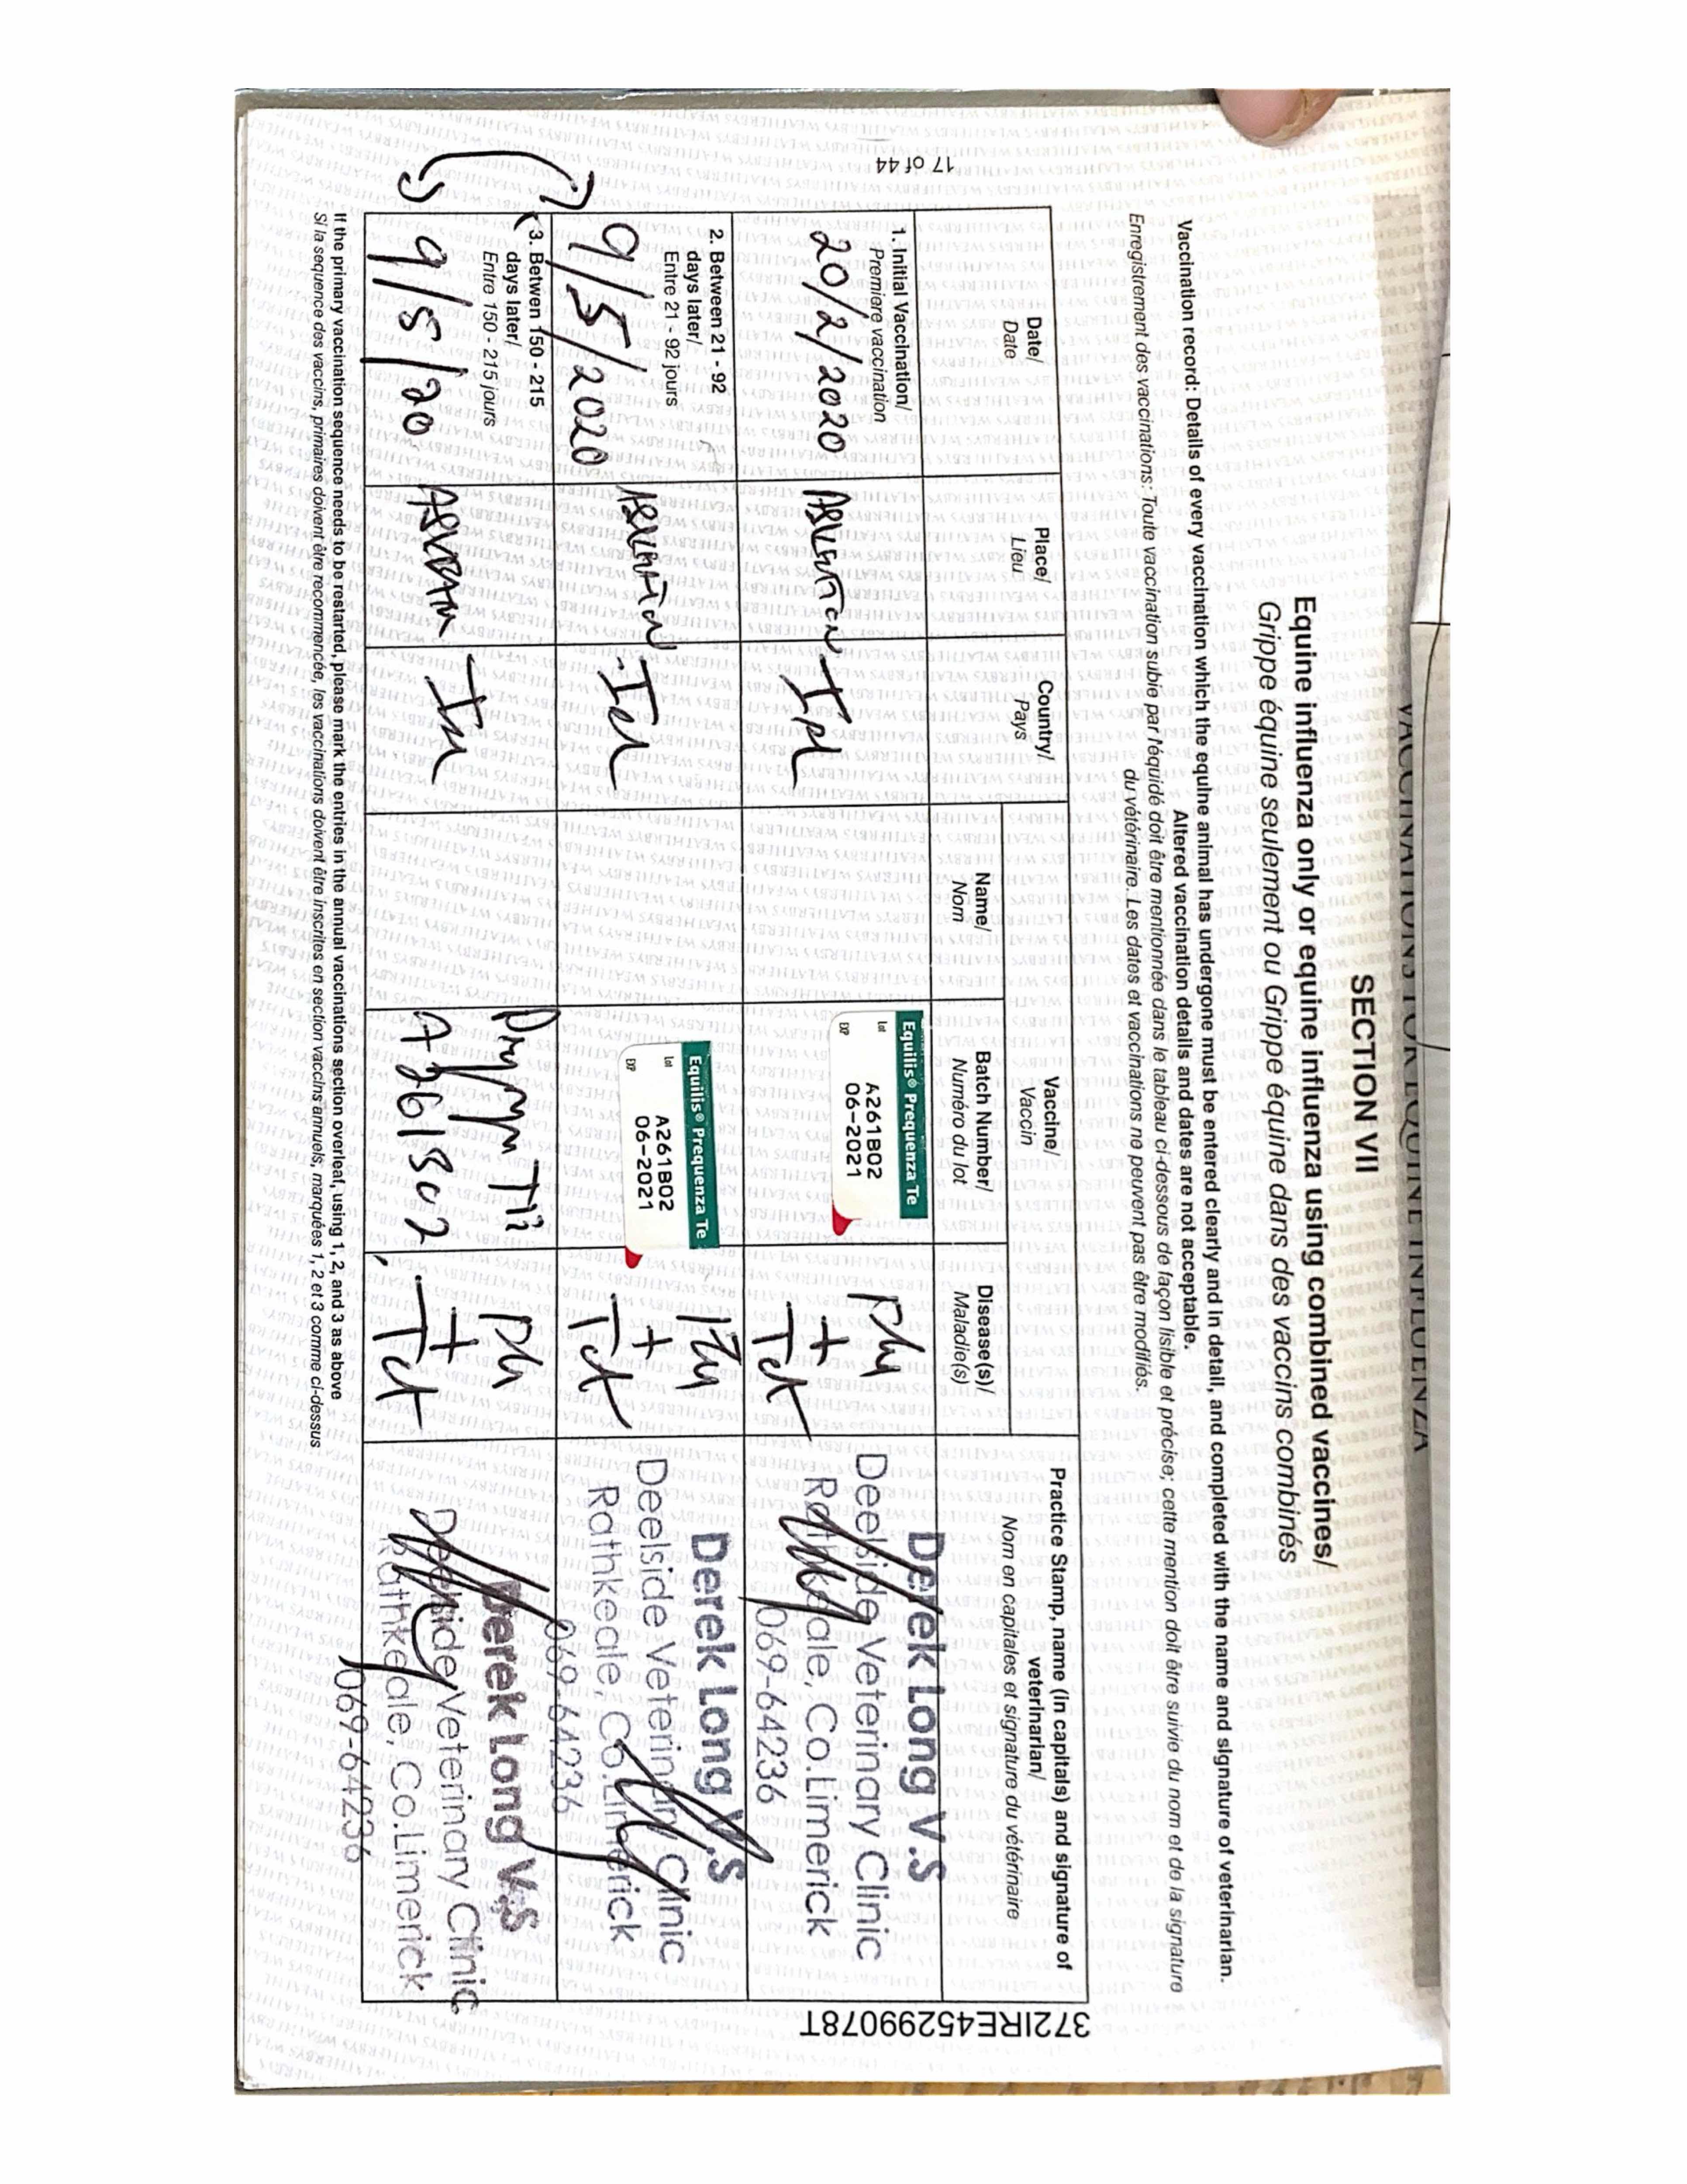 VACCINATIONS FOR EQUINE INFLUENZA
SECTION VII
Equine influenza only or equine influenza using combined vaccines/
Grippe équine seulement ou Grippe équine dans des vaccins combinés
Vaccination record: Details of every vaccination which the equine animal has undergone must be entered clearly and in detail, and completed with the name and signature of veterinarian.
Altered vaccination details and dates are not acceptable.
Enregistrement des vaccinations: Toute vaccination subie par l'équidé doit être mentionnée dans le tableau ci-dessous de façon lisible et précise; cette mention doit être suivie du nom et de la signature
du vétérinaire. Les dates et vaccinations ne peuvent pas être modifiés.
Date/
Date
Place/
Lieu
Country/
Pays
Vaccine/
Vaccin
Name/
Nom
Batch Number/
Numéro du lot
Disease(s)/
Maladie(s)
Practice Stamp, name (in capitals) and signature of
veterinarian/
Nom en capitales et signature du vétérinaire
1. Initial Vaccination/
Premiere vaccination
20/2/2020
Equilis® Prequenza Te
Lot A261B02
EXP 06-2021
Flu
+
Tet
Derek Long V.S
Deelside Veterinary Clinic
Rathkeale, Co.Limerick
069-64236
2. Between 21 - 92
days later/
Entre 21 - 92 jours
9/5/2020
Equilis® Prequenza Te
Lot A261B02
EXP 06-2021
Flu
+
Tet
Derek Long V.S
Deelside Veterinary Clinic
Rathkeale, Co.Limerick
069-64236
3. Between 150 - 215
days later/
Entre 150 - 215 jours
9/5/20
A261B02
Flu
+
Tet
Derek Long V.S
Deelside Veterinary Clinic
Rathkeale, Co.Limerick
069-64236
If the primary vaccination sequence needs to be restarted, please mark the entries in the annual vaccinations section overleaf, using 1, 2, and 3 as above
Si la sequence des vaccins, primaires doivent être recommencée, les vaccinations doivent être inscrites en section vaccins annuels, marquées 1, 2 et 3 comme ci-dessus
17 of 44
372IRE45299078T